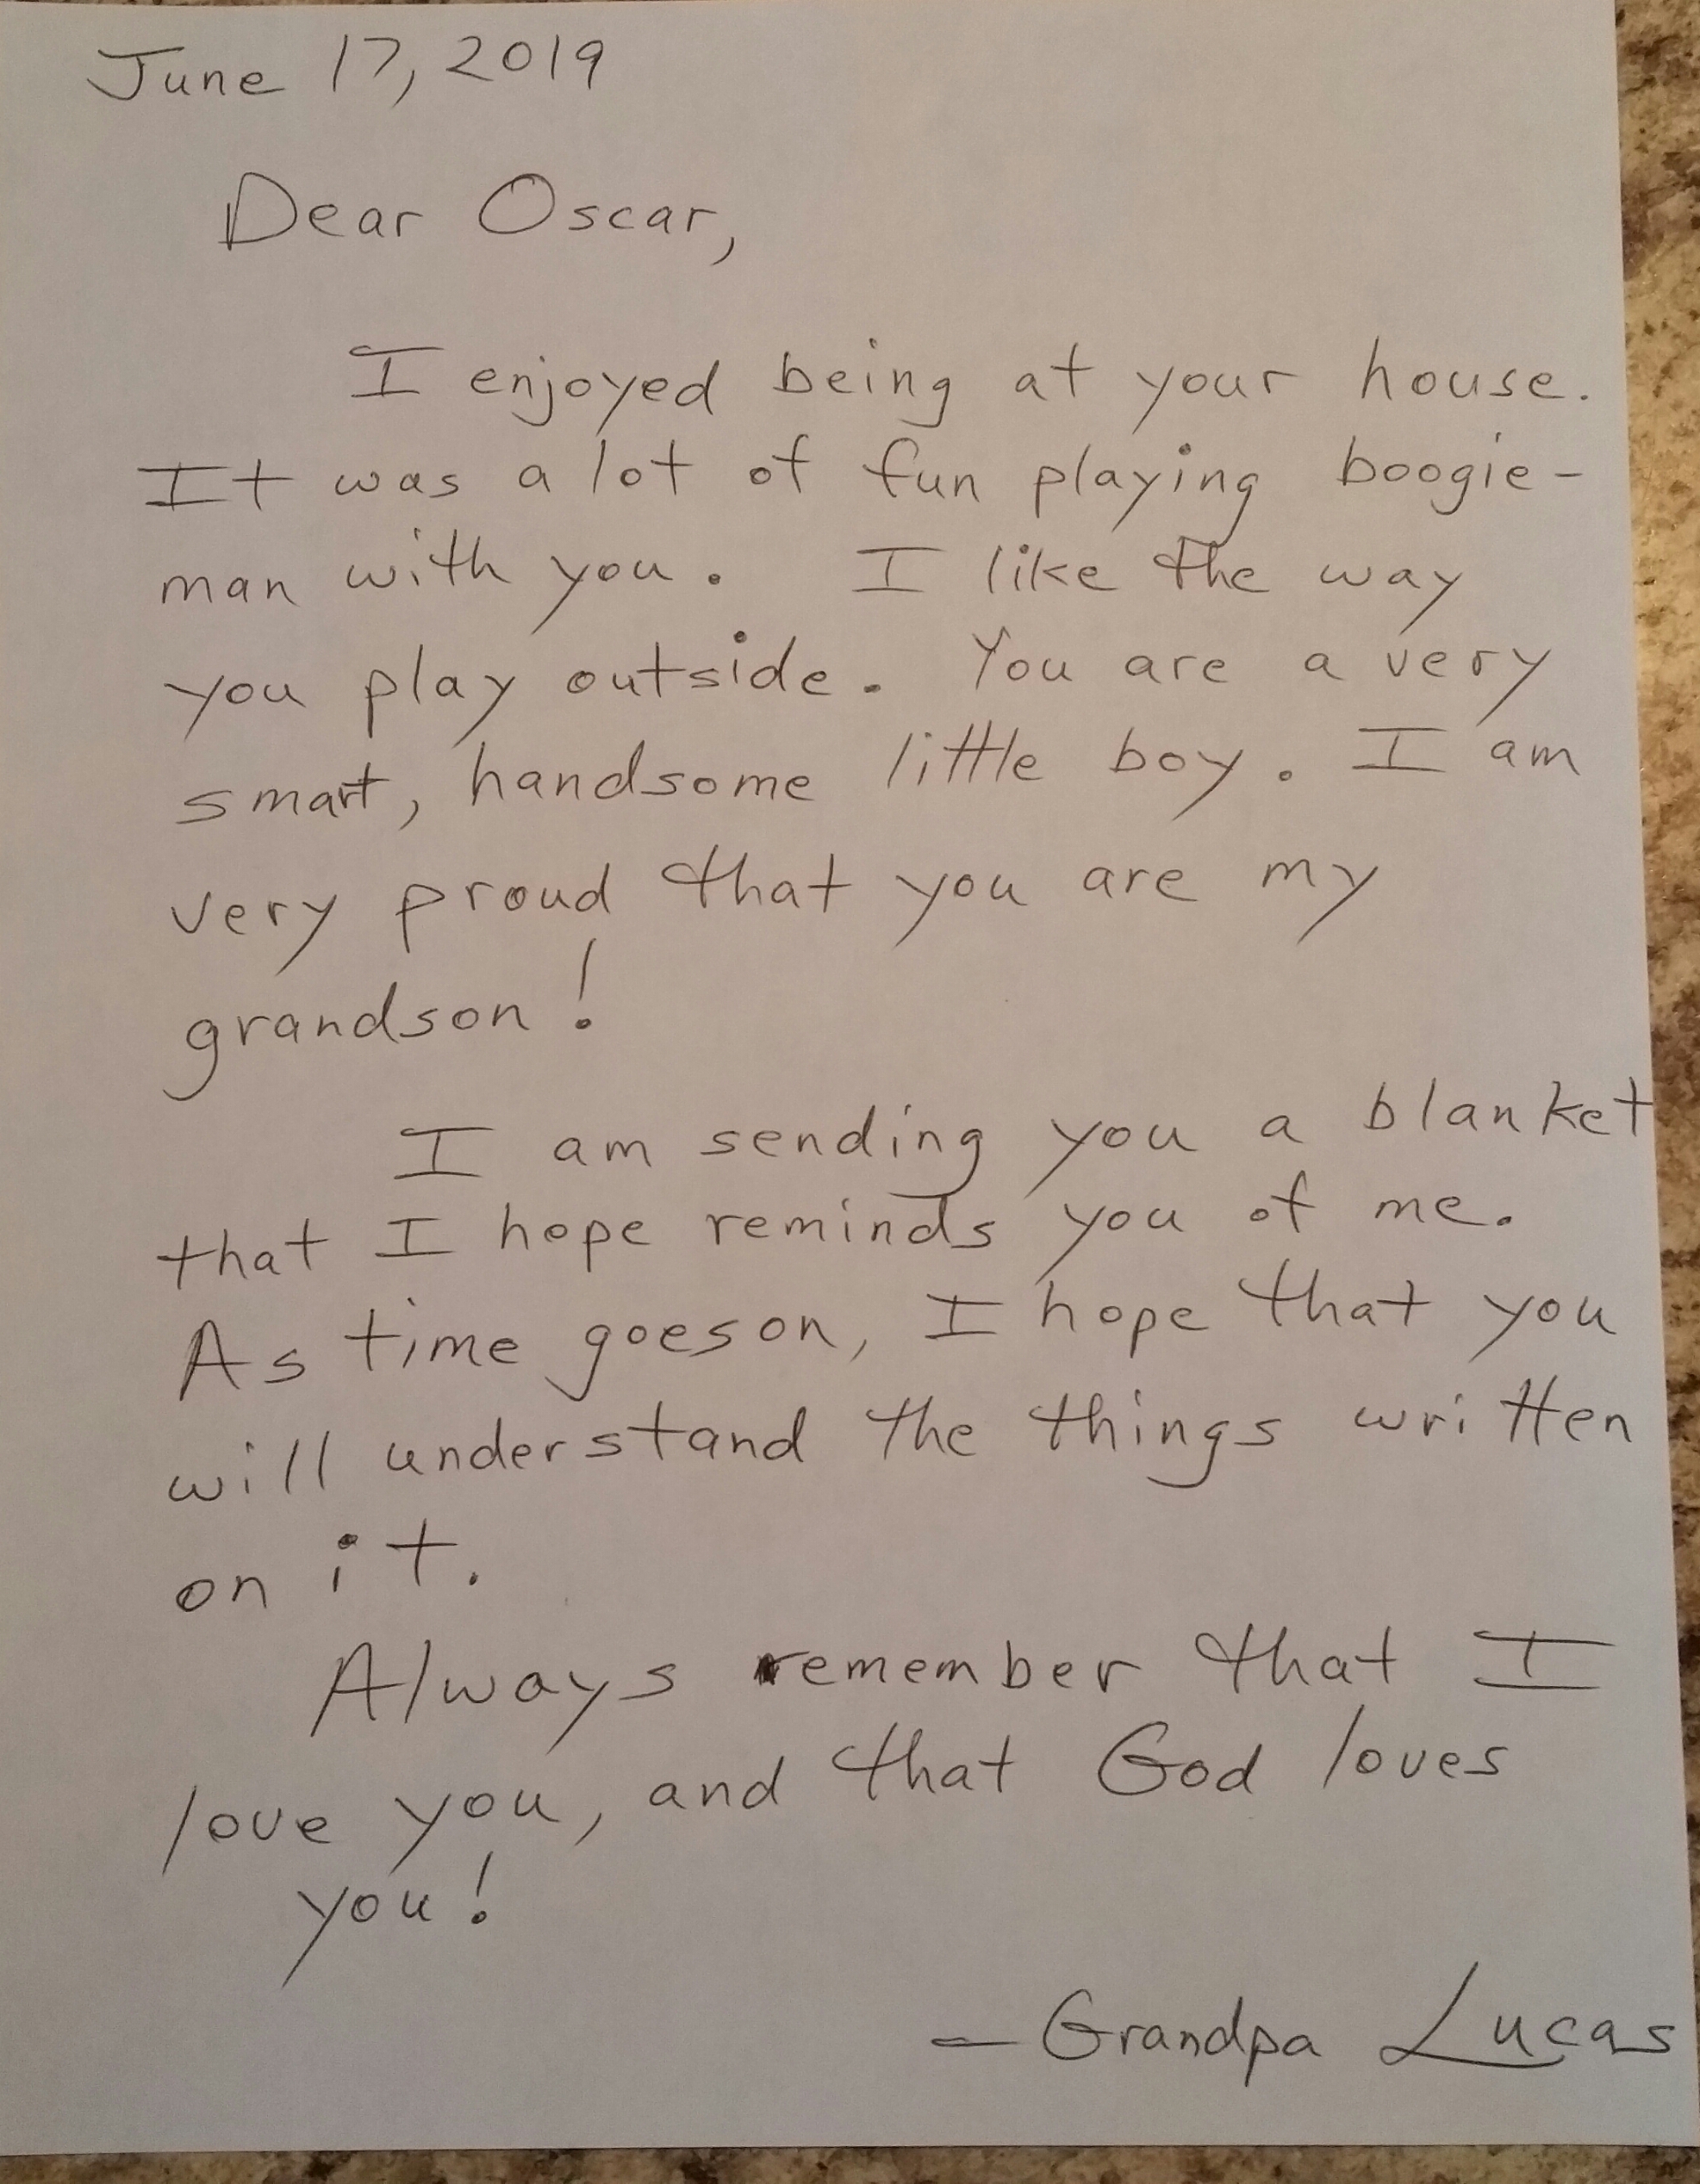 June 17, 2019
Dear Oscar,
I enjoyed being at your house.
It was a lot of fun playing boogie-
man with you. I like the way
you play outside. You are a very
smart, handsome little boy. I am
very proud that you are my
grandson!
I am sending you a blanket
that I hope reminds you of me.
As time goes on, I hope that you
will understand the things written
on it.
Always remember that I
love you, and that God loves
you!
— Grandpa Lucas